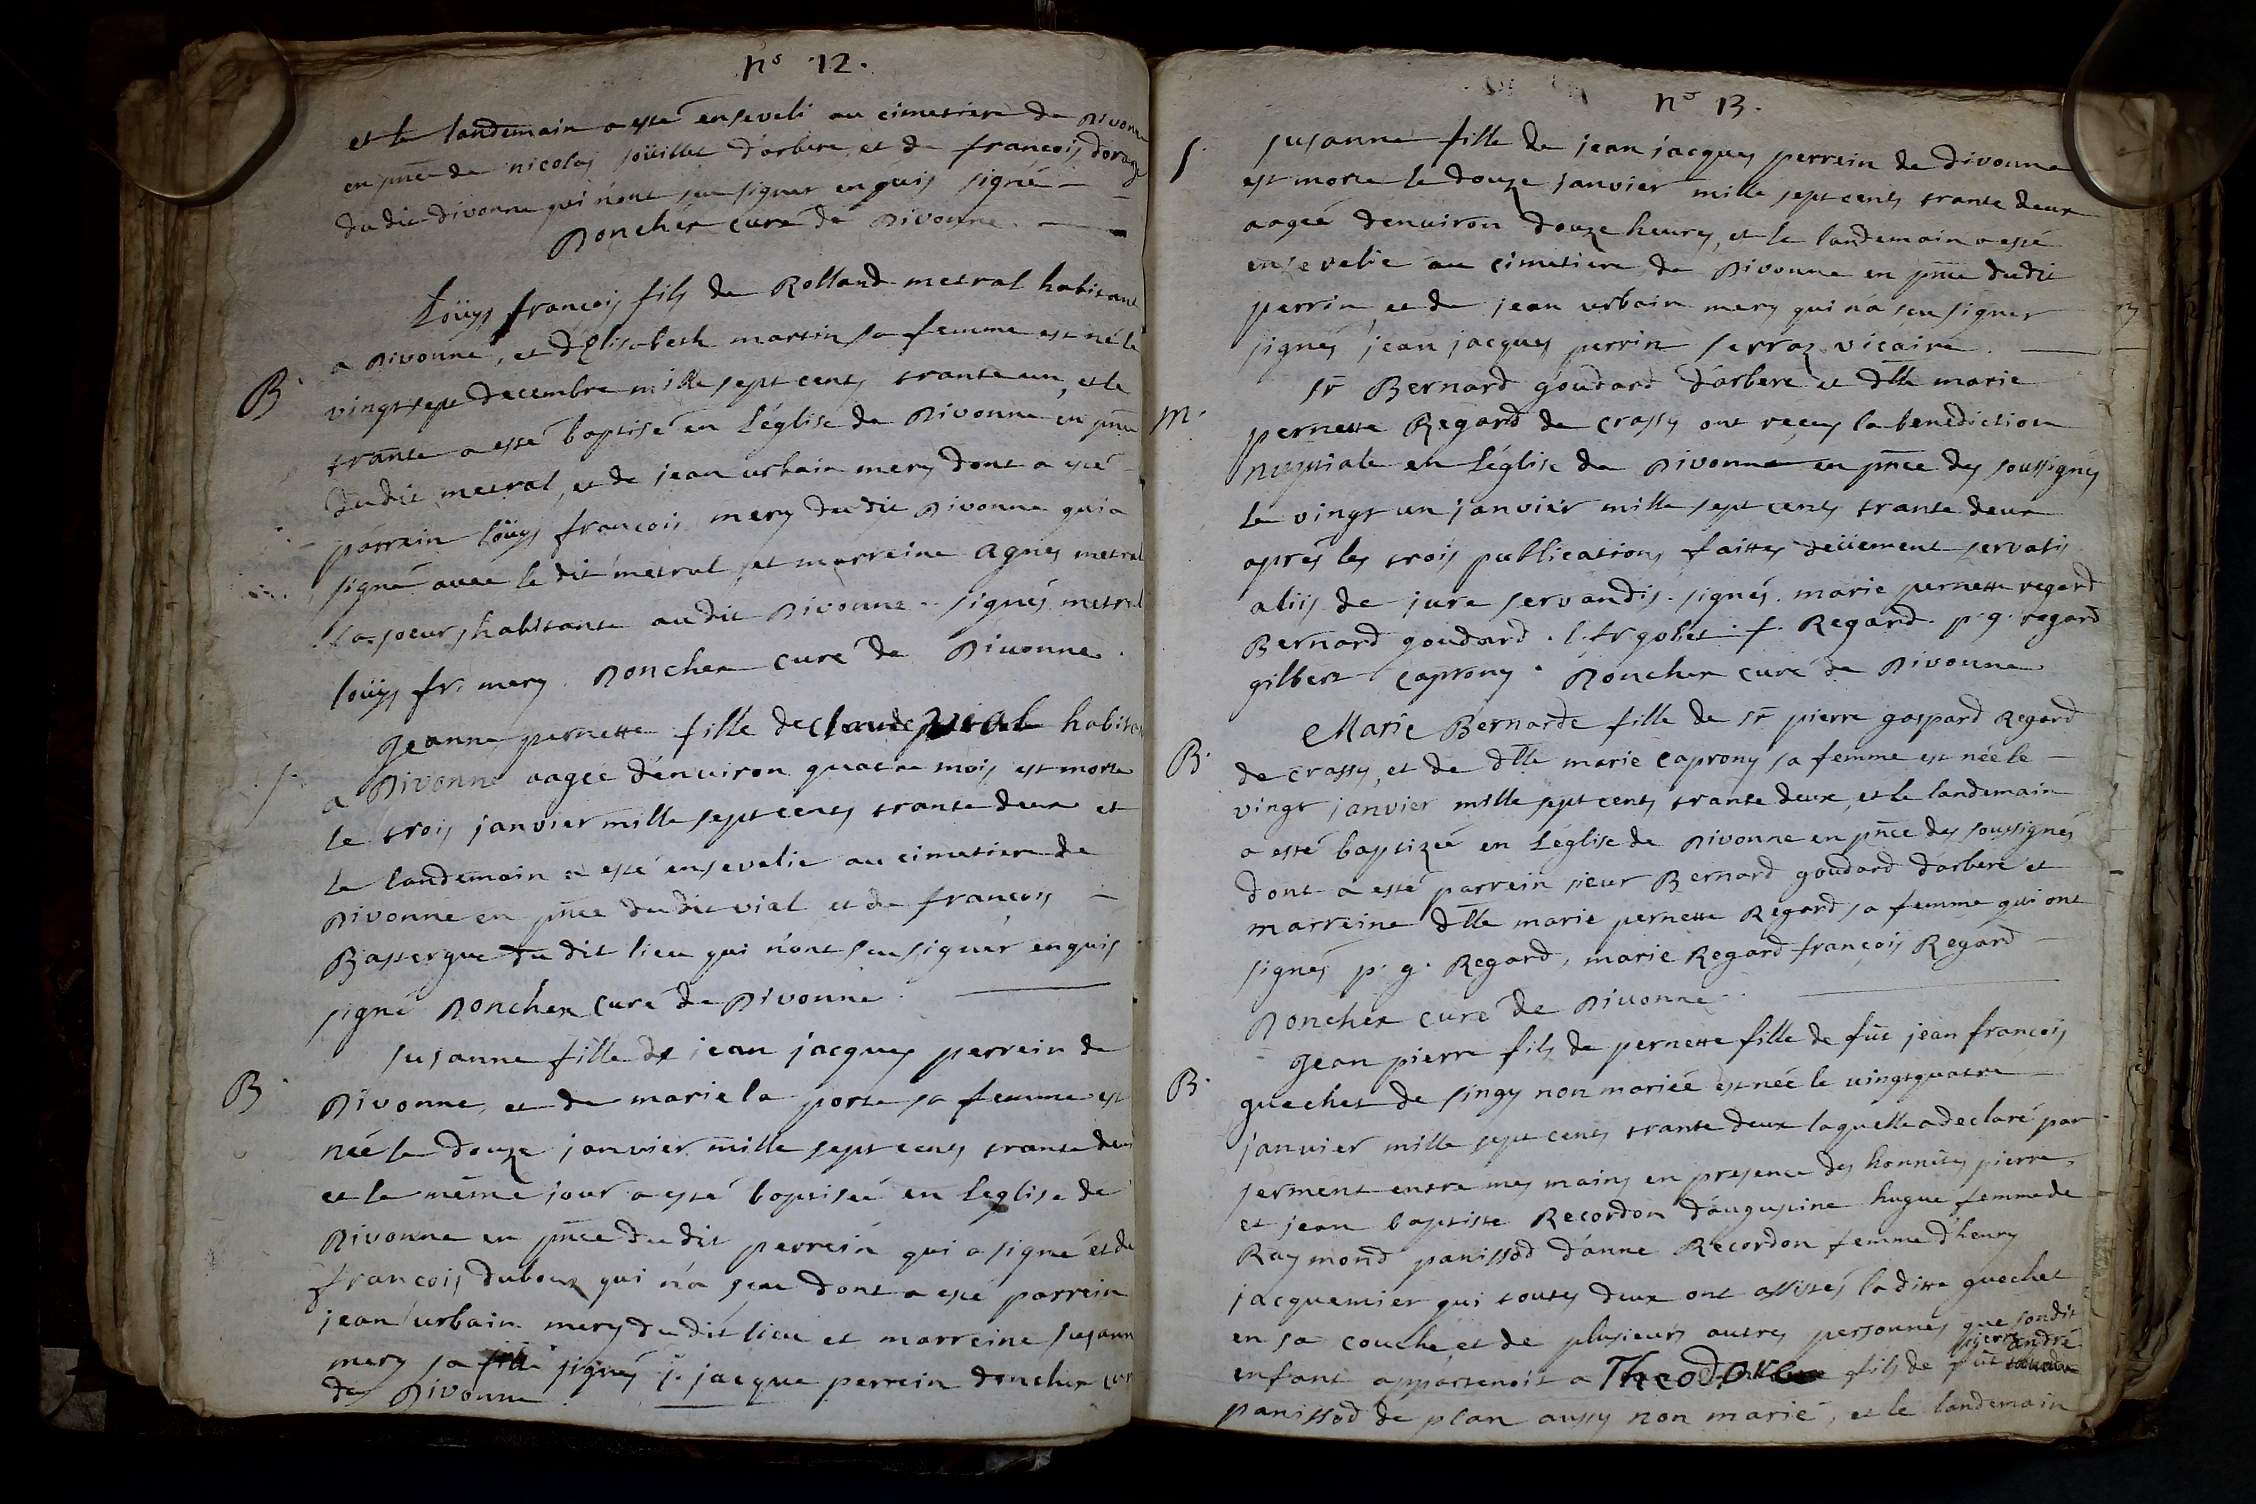 nº 12.
et le landemain a esté enseveli au cimetiere de Divonne
en pnce de nicolas soüillet d'arbere, et de francois dorage
du dit divonne qui n'ont sçu signer enquis signé —
Doncher curé de Divonne. —
Loüys francois fils de Rolland metral habitant
a Divonne, et d'Elisabeth martin sa femme est né le
B. vingt sept decembre mille sept cents trante un, et le
trante a esté baptisé en l'église de Divonne en pnce
dudit metral, et de jean urbain mery dont a esté
parrain loüys francois mery du dit Divonne qui a
signé avec le dit metral, et marreine agnes metral
sa soeur habitante au dit Divonne.. signés metral
loüys fr. mery. Doncher curé de Divonne.
Jeanne pernette fille de claude vial habitant
S. a Divonne aagée d'enuiron quatre mois est morte
le trois janvier mille sept cents trante deux et
le landemain a esté ensevelie au cimetiere de
Divonne en pnce du dit vial et de françois —
Bassergue du dit lieu qui n'ont sçu signer enquis
signé Doncher curé de Divonne. —
susanne fille de jean jacques perrein de
B. Divonne, et de marie la porte sa femme est
née le douze janvier mille sept cents trante deux
et le même jour a esté baptisée en l'eglise de
Divonne en pnce du dit perrein qui a signé et de
francois dubouz qui n'a sçu dont a esté parrein
jean urbain mery du dit lieu et marreine susanne
mery sa fille signés j. jacque perrein doncher curé
de Divonne.
nº 13.
S. susanne fille de jean jacques perrein de divonne
est morte le douze janvier mille sept cents trante deux
aageé d'enuiron douze heures, et le landemain a esté
ensevelie au cimetiere de Divonne en pnce dudit
perrin et de jean urbain mery qui n'a sçu signer
signés jean jacques perrin serraz vicaire. —
sr Bernard goudard d'arbere et dlle marie
m. pernette Regard de crassy ont reçeu la benediction
nuptiale en l'église de Divonne en pnce des soussignés
le vingt un janvier mille sept cents trante deux
aprés les trois publications faittes deüement servatis
aliis de jure servandis. signés. marie pernette regard
Bernard goudard. l. fr golet. f. Regard. p. g. regard
gilbert caprony. Doncher curé de Divonne
Marie Bernarde fille de sr pierre gaspard Regard
B. de crassy, et de dlle marie caprony sa femme est née le —
vingt janvier mille sept cents trante deux, et le landemain
a esté baptizée en l'église de Divonne en pnce des soussignés
dont a esté parrein sieur Bernard goudard d'arbere et
marreine dlle marie pernette Regard sa femme qui ont
signés p. g. Regard, marie Regard françois Regard —
Doncher curé de Divonne.. —
Jean pierre fils de pernette fille de fût jean francois
B. guechet de singy non mariée est née le vingtquatre —
janvier mille sept cents trante deux laquelle a declaré par
serment entre mes mains en presence des honnêtes pierre
et jean baptiste Recordon d'augustine hugue femme de
Raymond panissod d'anne Recordon femme d'heury
jacquemier qui toutes deux ont assistés la ditte guechet
en sa couche, et de plusieurs autres personnes que son dit
pierre andré
enfant appartenoit a Theodore fils de fût
panissod de plan aussy non marié, et le landemain